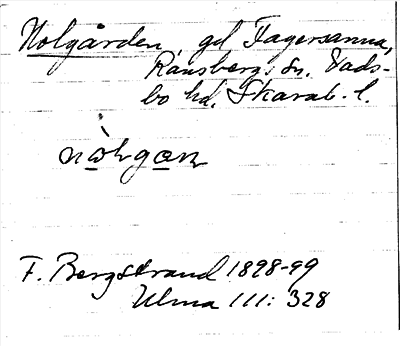 Nolgården, gd Fagersanna,
Ransbergs sn. Vads-
bo hd, Skarab. l.
nòlgan
F. Bergstrand 1898-99
Ulma 111: 328